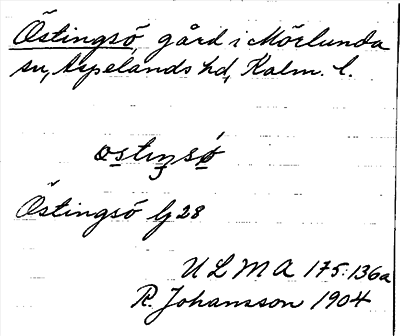 Östingsö, gård i Mörlunda
sn, Aspelands hd, Kalm. l.
Östingsö lj 28
ULMA 175:136a
R. Johansson 1904